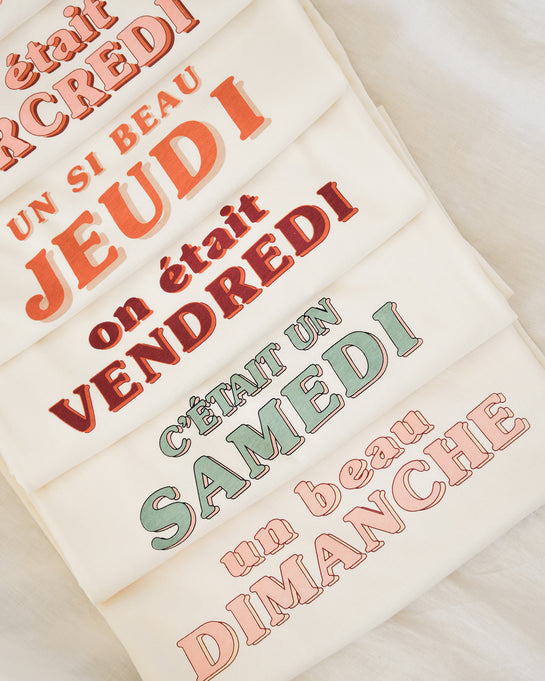 était
UN SI BEAU
JEUDI
on était
VENDREDI
C'ÉTAIT UN
SAMEDI
un beau
DIMANCHE